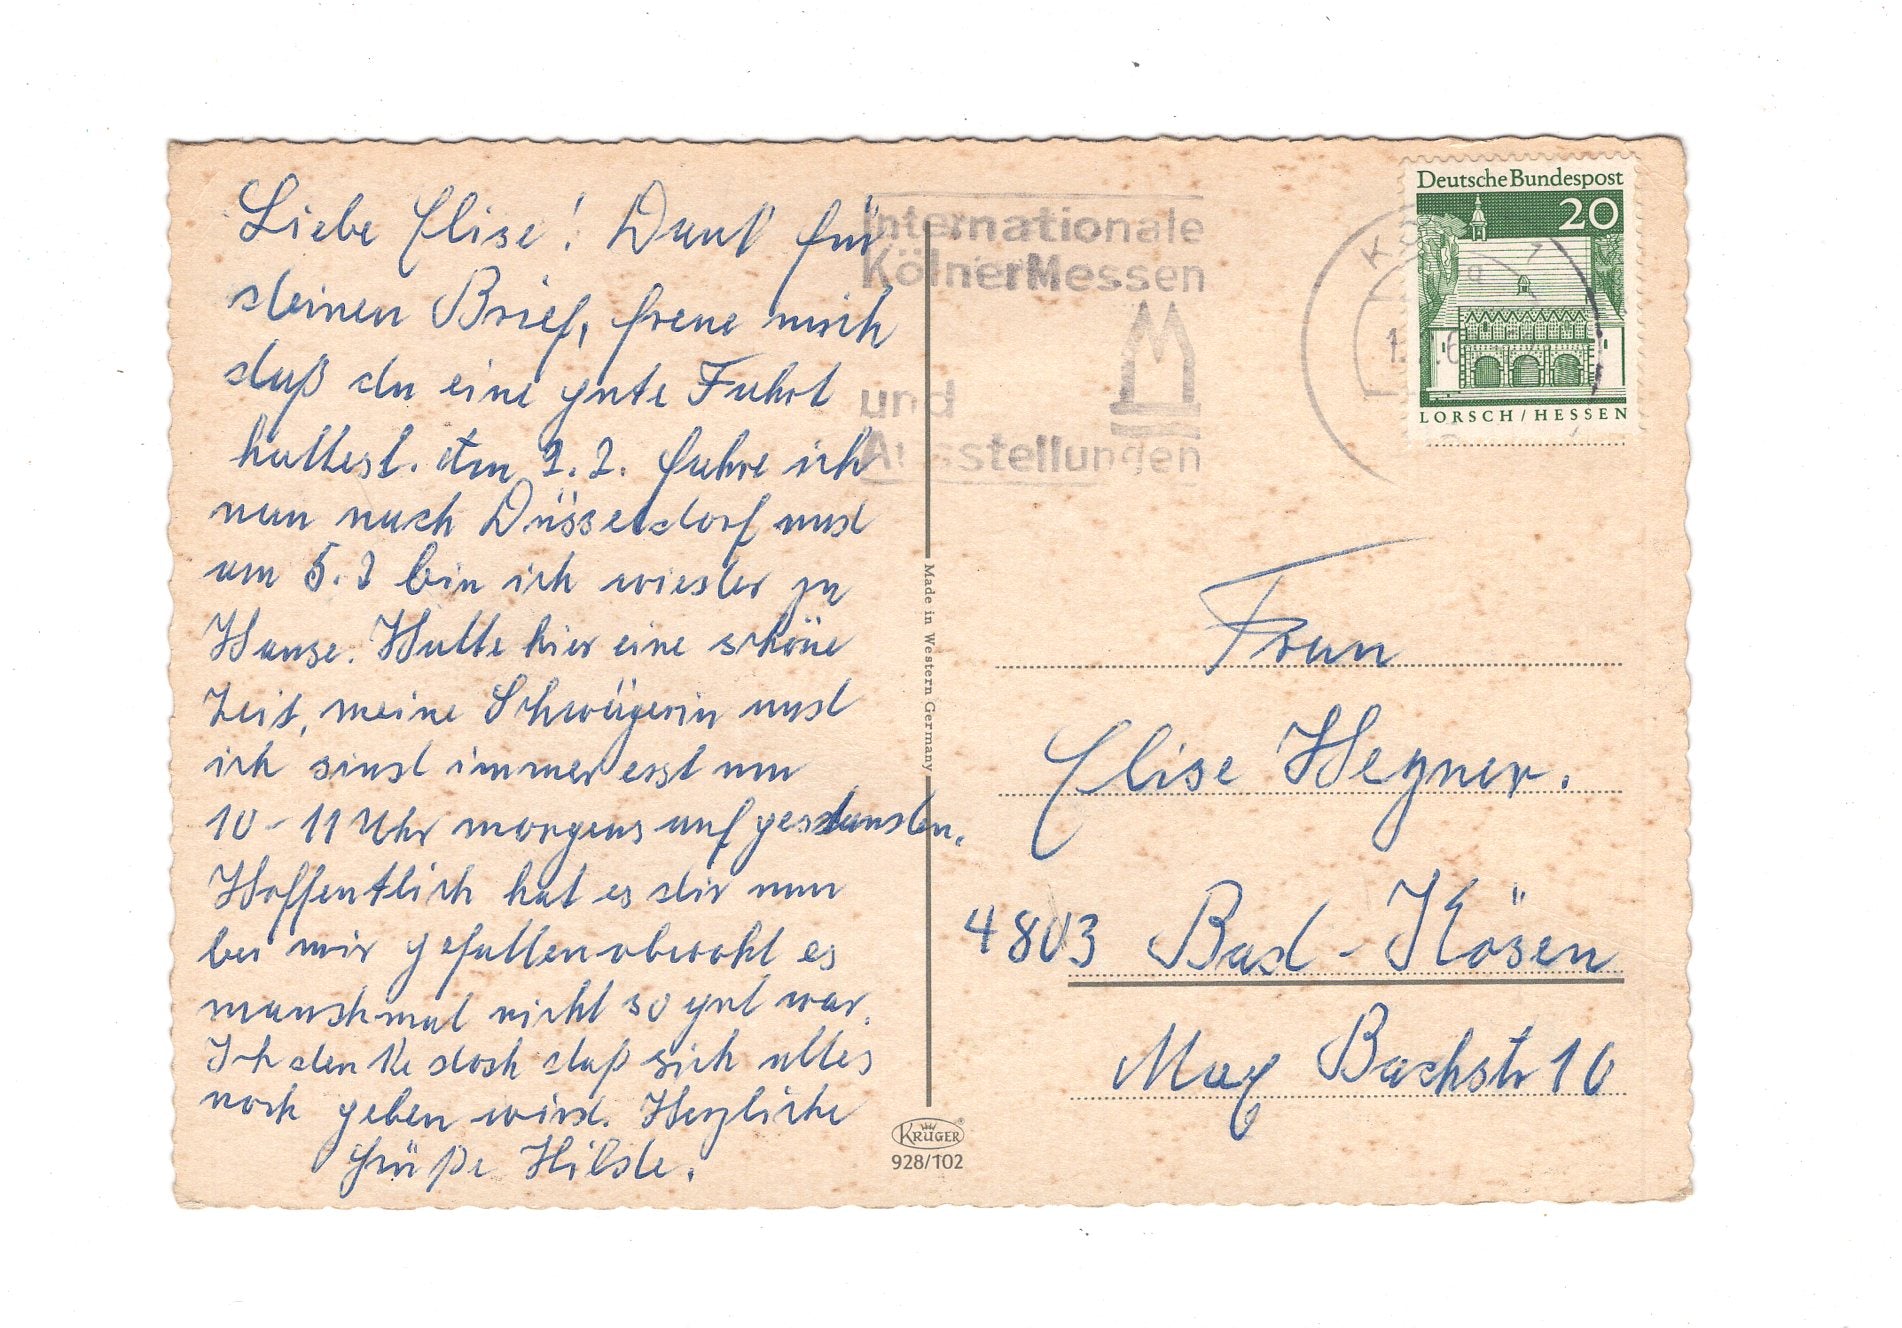 Liebe Elise! Dank für
deinen Brief, freue mich
daß du eine gute Fahrt
hattest. Am 2.2. fahre ich
nun nach Düsseldorf und
am 5.2 bin ich wieder zu
Hause. Hatte hier eine schöne
Zeit, meine Schwägerin und
ich sind immer erst um
10-11 Uhr morgens aufgestanden.
Hoffentlich hat es dir nun
bei mir gefallen obwohl es
manchmal nicht so gut war.
Ich denke doch daß sich alles
noch geben wird. Herzliche
Grüße Hilde.
Internationale
KölnerMessen
und
Ausstellungen
Deutsche Bundespost
20
LORSCH/HESSEN
Made in Western Germany
Frau
Elise Hegner.
4803 Bad-Kösen
May Bachstr 10
KRÜGER
928/102